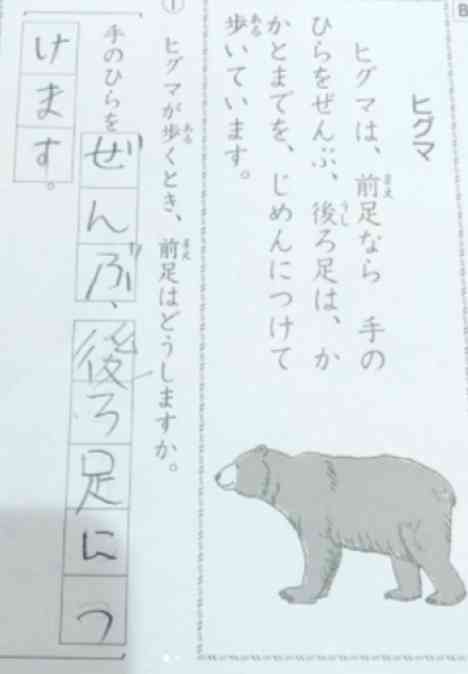 B
ヒグマ
ヒグマは、前足なら 手の
ひらをぜんぶ、後ろ足は、か
かとまでを、じめんにつけて
歩いています。
① ヒグマが歩くとき、前足はどうしますか。
手のひらをぜんぶ、後ろ足につ
けます。